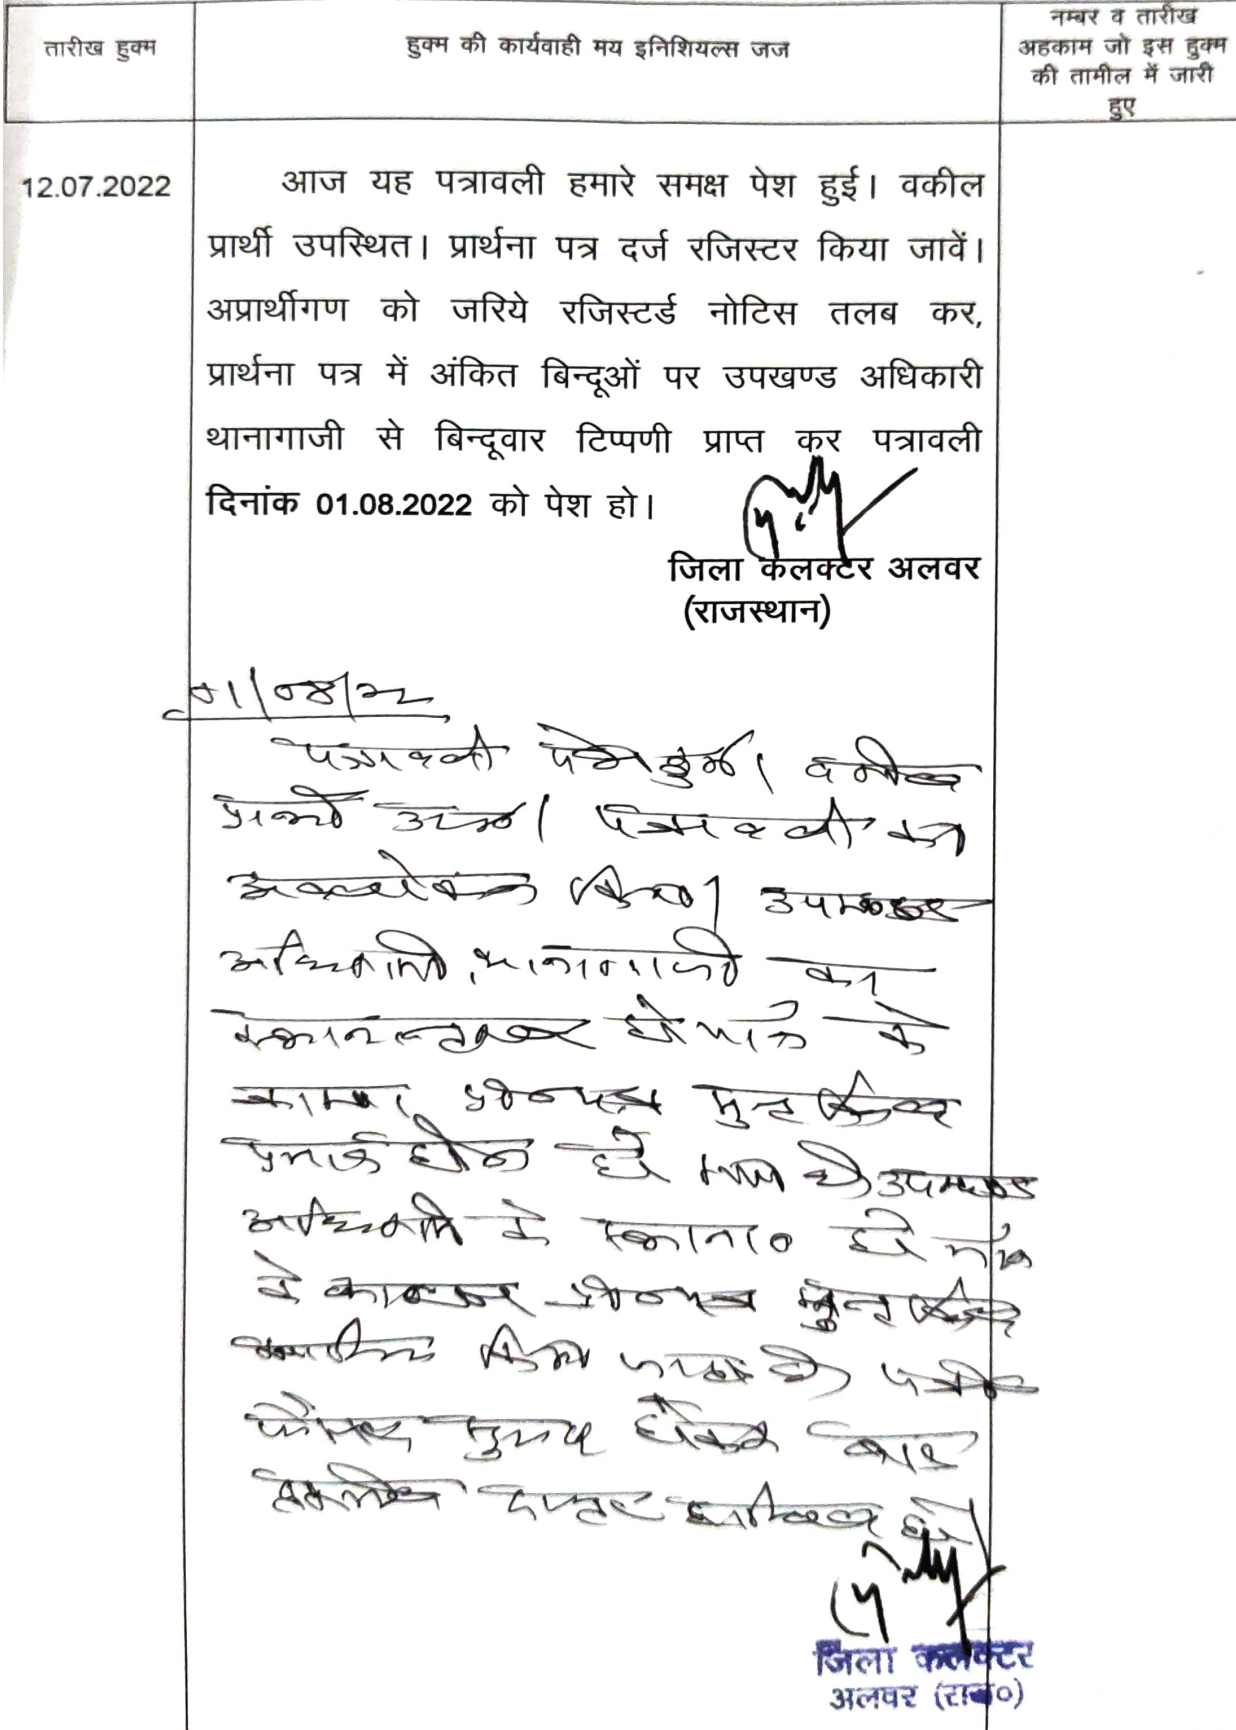 तारीख हुक्म
हुक्म की कार्यवाही मय इनिशियल्स जज
नम्बर व तारीख
अहकाम जो इस हुक्म
की तामील में जारी
हुए
12.07.2022
आज यह पत्रावली हमारे समक्ष पेश हुई। वकील
प्रार्थी उपस्थित। प्रार्थना पत्र दर्ज रजिस्टर किया जावें।
अप्रार्थीगण को जरिये रजिस्टर्ड नोटिस तलब कर,
प्रार्थना पत्र में अंकित बिन्दूओं पर उपखण्ड अधिकारी
थानागाजी से बिन्दूवार टिप्पणी प्राप्त कर पत्रावली
दिनांक 01.08.2022 को पेश हो।
जिला कलक्टर अलवर
(राजस्थान)
01/08/22
पत्रावली पेश हुई। वकील
प्रार्थी उप०। पत्रावली का
अवलोकन किया। उपखण्ड
अधिकारी, थानागाजी का
स्थानान्तरण हो जाने के
कारण प्रार्थना पत्र
उपखण्ड
अधिकारी के स्थाना० हो जाने
के कारण प्रार्थना पत्र
खारिज किया जाता है।
फैसल शुमार होकर बाद
तकमील दफ्तर दाखिल हो
जिला कलक्टर
अलवर (राज०)